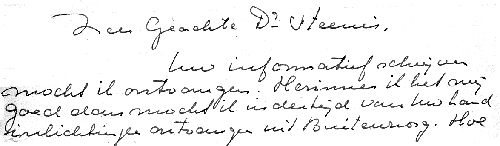 Zeer Geachte Dr Steenis,
Uw informatief schrijven
mocht ik ontvangen. Herinner ik het mij
goed dan mocht ik indertijd van Uw hand
inlichtingen ontvangen uit Buitenzorg. Hoe